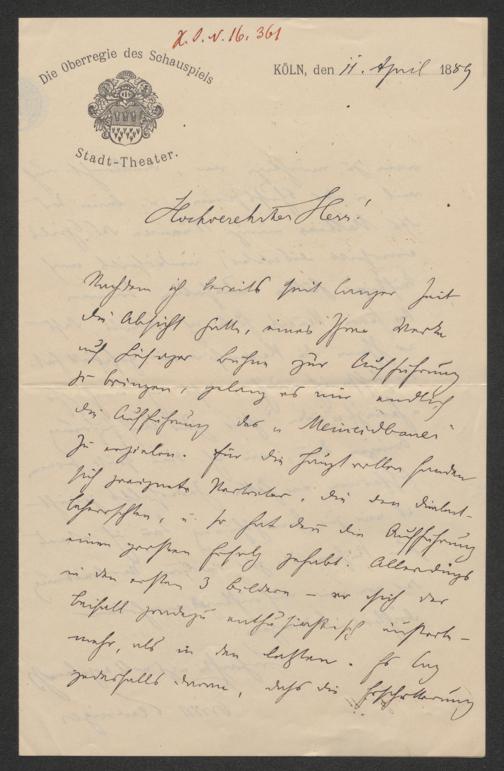 J. N. 16.361
Die Oberregie des Schauspiels
Stadt-Theater.
KÖLN, den 11. April 1889
Hochverehrter Herr!
Nachdem ich bereits seit langer Zeit
die Absicht hatte, eines Ihrer Werke
auf hiesiger Bühne zur Aufführung
zu bringen, gelang es mir endlich
die Aufführung des „Meineidbauer"
zu erzielen. Für die Hauptrollen fanden
sich geeignete Vertreter, die den Dialect
beherrschten, u. so hat denn die Aufführung
einen großen Erfolg gehabt. Allerdings
in den ersten 3 Bildern – wo sich der
Beifall geradezu enthusiastisch äußerte –
mehr, als in den letzten. Es lag
jedenfalls daran, daß die Erschütterung